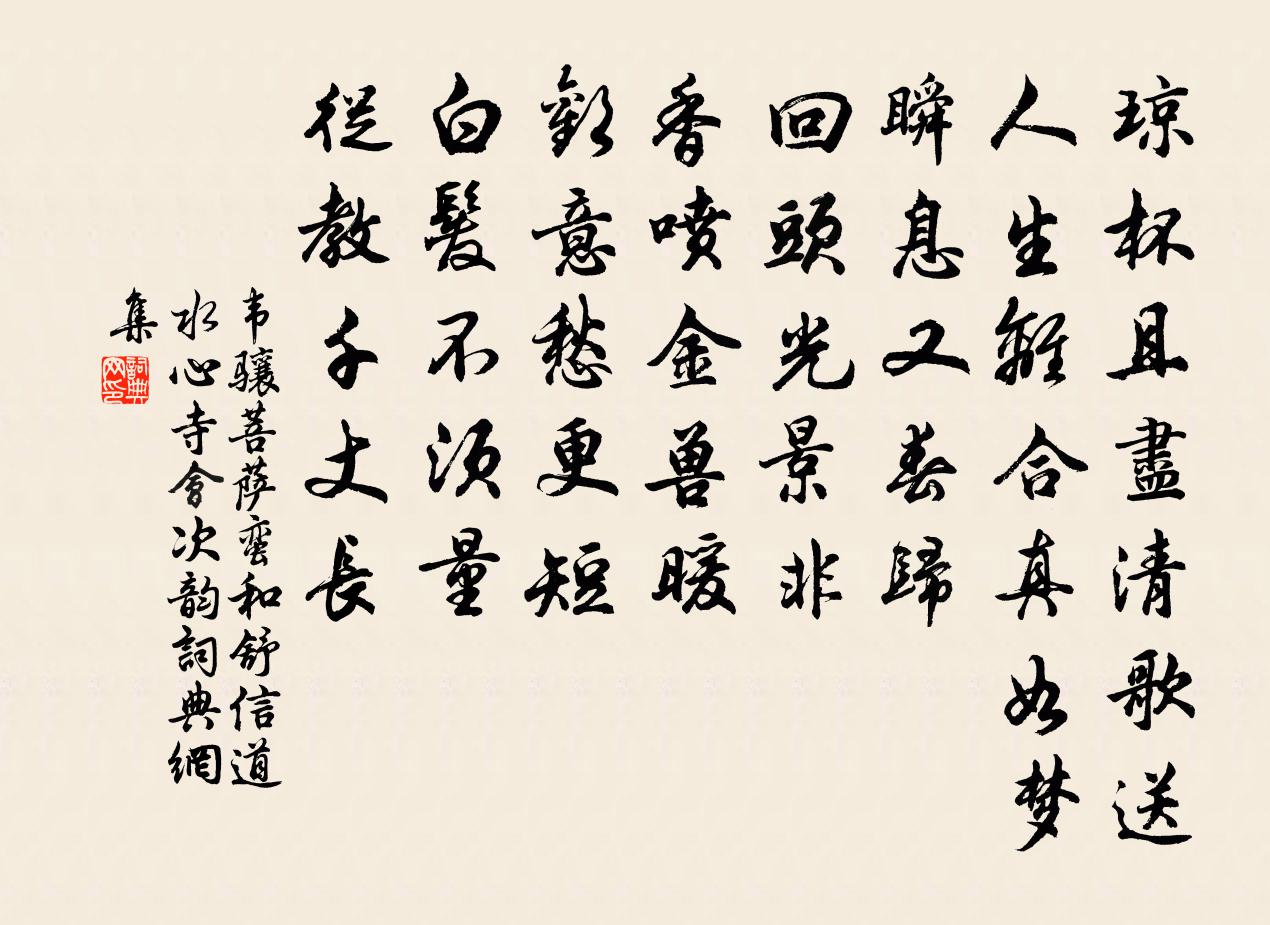 琼杯且盡清歌送
人生離合真如梦
瞬息又春歸
回頭光景非
香喷金兽暖
歡意愁更短
白髮不须量
從教千丈長
韦骧菩萨蛮和舒信道
水心寺會次韵詞典網
集
詞典网印